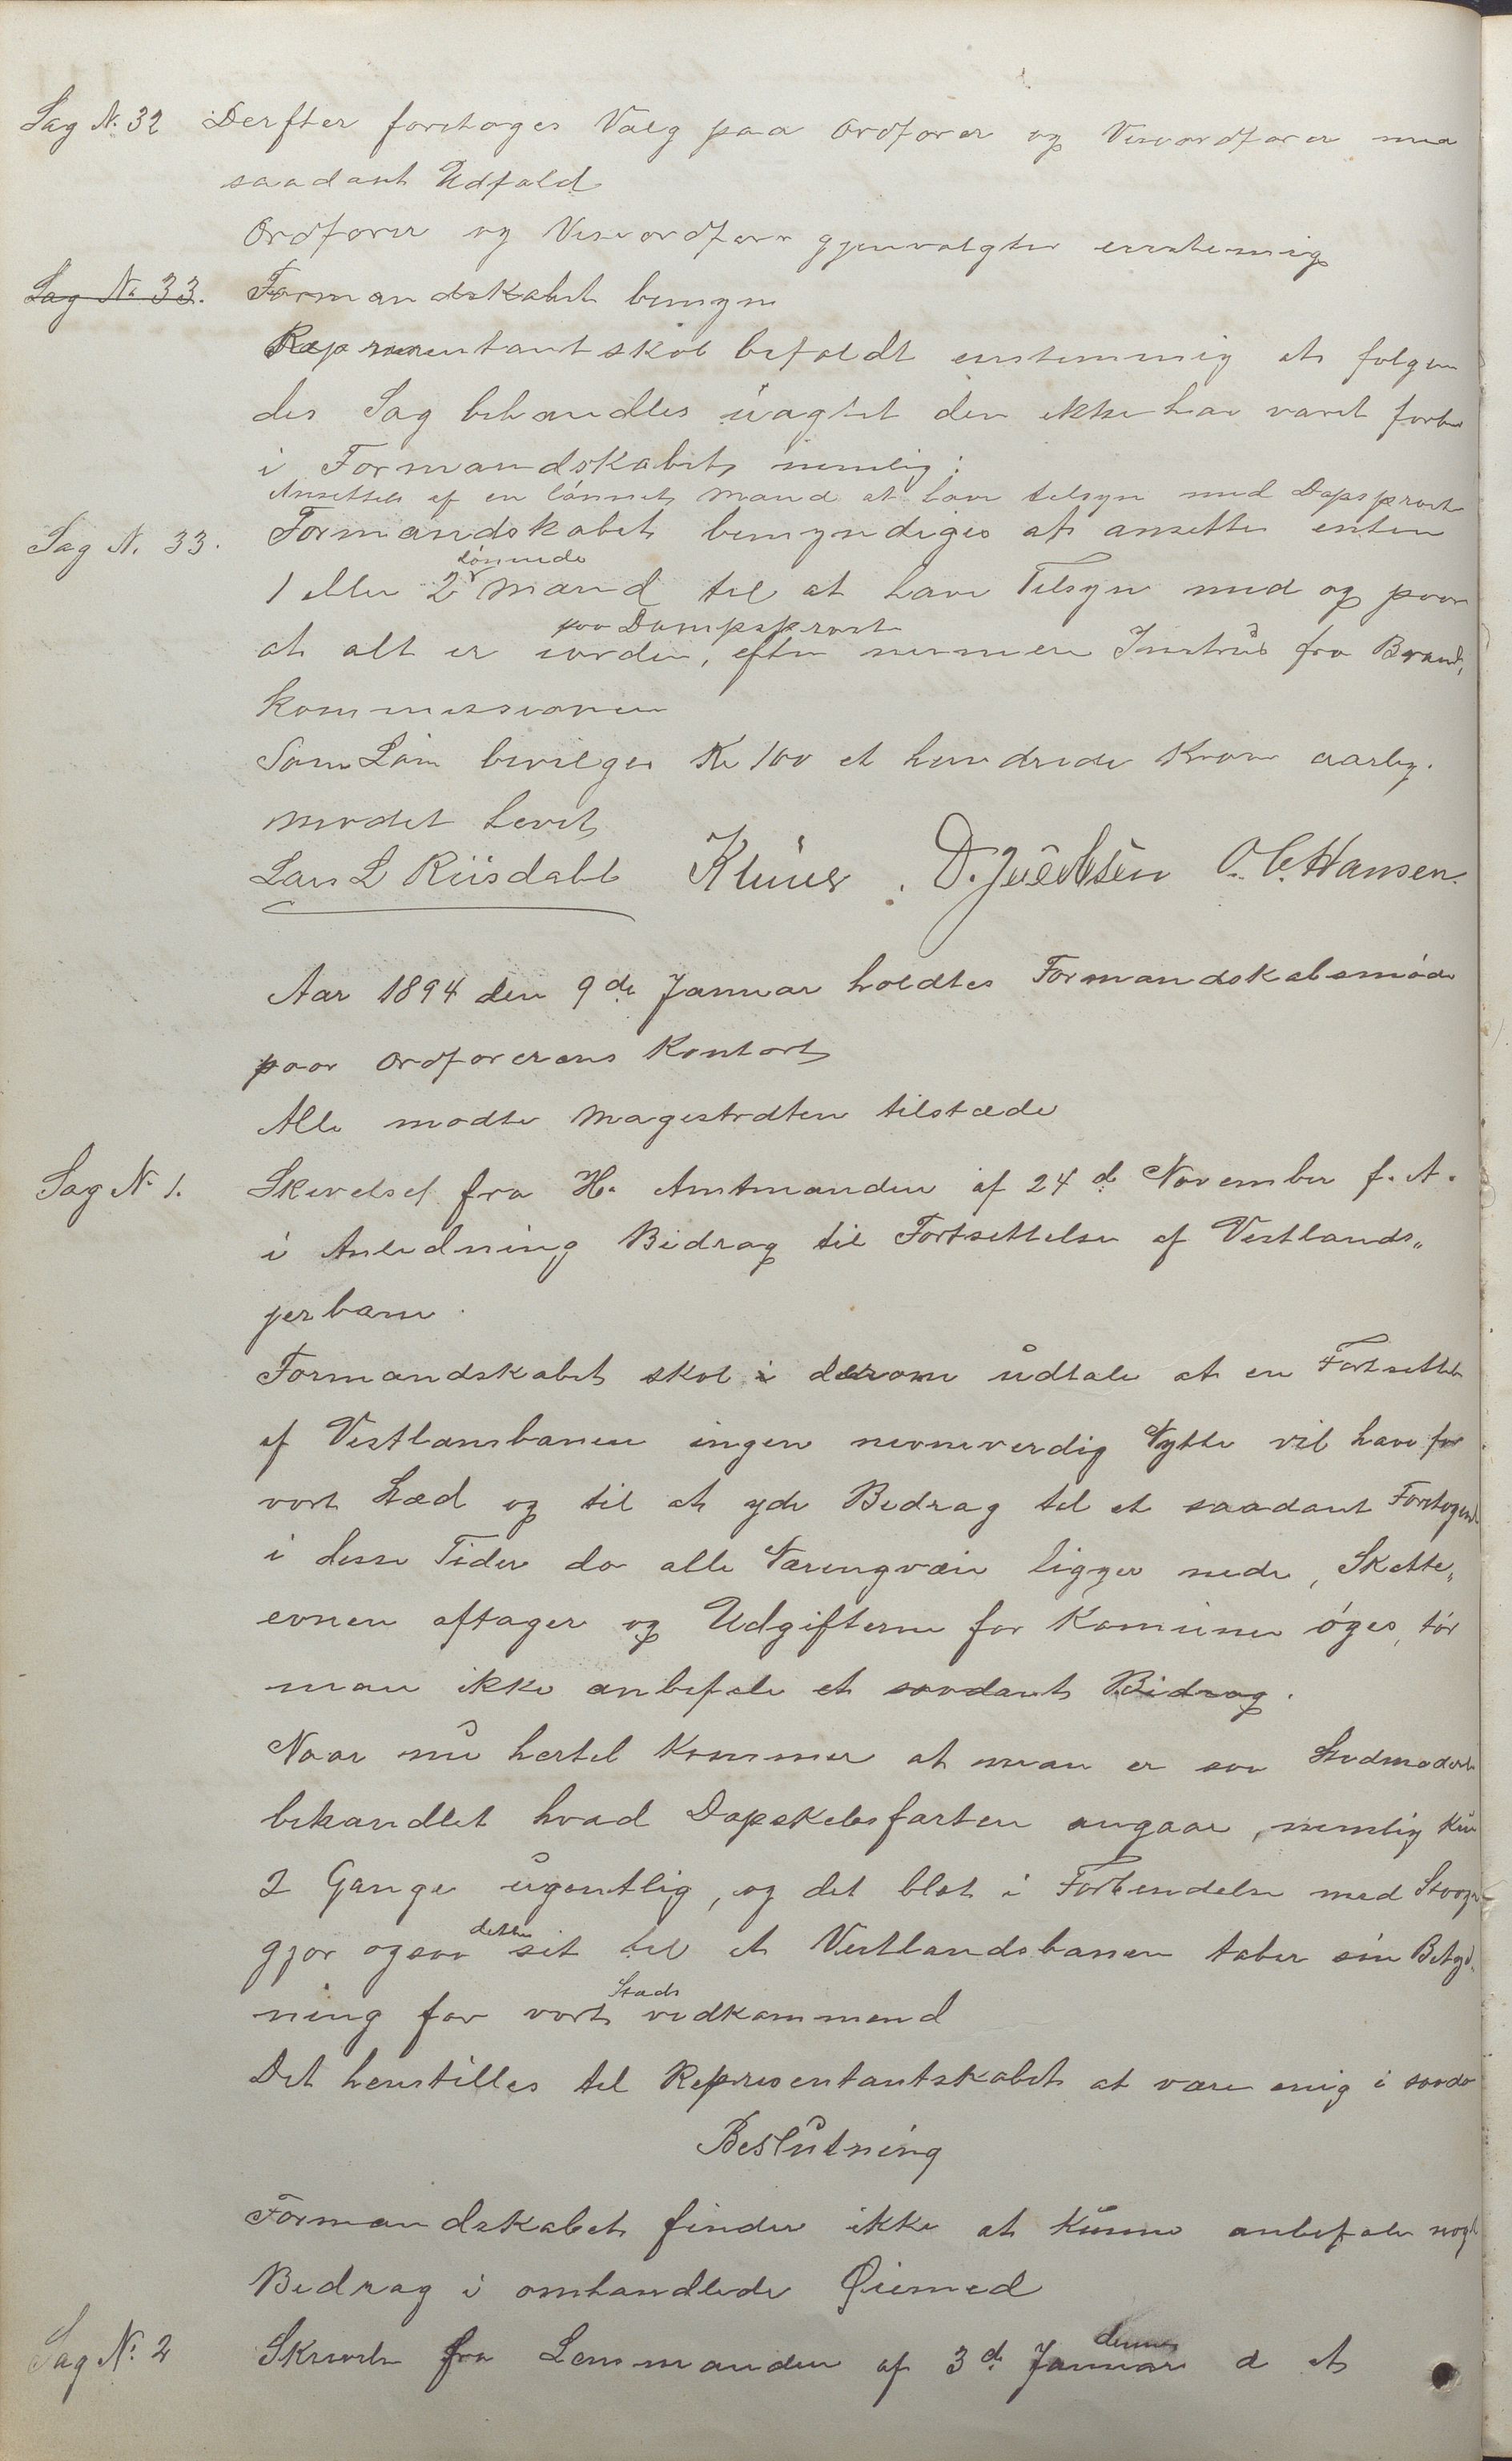 Sag N. 32 Derfter foretages Valg paa Ordforer og Viseordforer med
saadant Udfald
Ordforer og Viseordforer gjenvalgtes eenstemig
Sag N. 33. Formandskabet bemyn
Representantskab befaldt enstemmig at folgen
des Sag behandles uagtet den ikke har varet forb
i Formandskabet nemlig:
Ansettels af en lönnet Mand at have tilsyn med Dapsprøit
Sag N. 33. Formandskabet bemyndiges at ansette enten
lönnede
1 eller 2 Mand til at have Tilsyn med og paase
paa Dampsprøit
at alt er iorden, efter nermere Instrux fra Brand,
kommissionen
Som Lön bevilges Kr 100 et hundrede Kroner aarlig.
Mødet hevet
Lars L Riisdahl Klüwer. D. Jacobsen O. C. Hansen.
Aar 1894 den 9de Januar holdtes Formandskabsmöde
paa Ordforerens Kontort
Alle modte Magestraten tilstæde
Sag N. 1. Skrivelse fra Hr. Amtmanden af 24d November f. A.
i Anledning Bidrag til Fortsettelse af Vestlands„
jerbane.
Formandskabet skal i derom udtale at en Fortsettels
af Vestlansbanen ingen nevneverdig Nytte vil have for
vort Sted og til at yde Bidrag til et saadant Foretagend
i desse Tider da alle Næringveie ligger nede, Skatte„
evnen aftager og Udgifterne for Komunen öges, tör
man ikke anbefale et saadant Bidrag.
Naar nu hertil kommer at man er saa Stedmoderl
behandlet hvad Dapskebsfarten angaar, nemlig kun
2 Gange ugentlig, og det blot i Forbendelse med
dette
gjor ogsaa sit til at Vestlandsbanen taber sin Betyd„
Stads
ning for vort vedkommend
Det henstilles til Representantskabet at være enig i saada
Beslutning
Formandskabet finder ikke at kunne anbefale noget
Bedrag i omhandlede Øiemed
denne
Sag N. 2 Skrivels fra Lensmanden af 3d. Januar d at